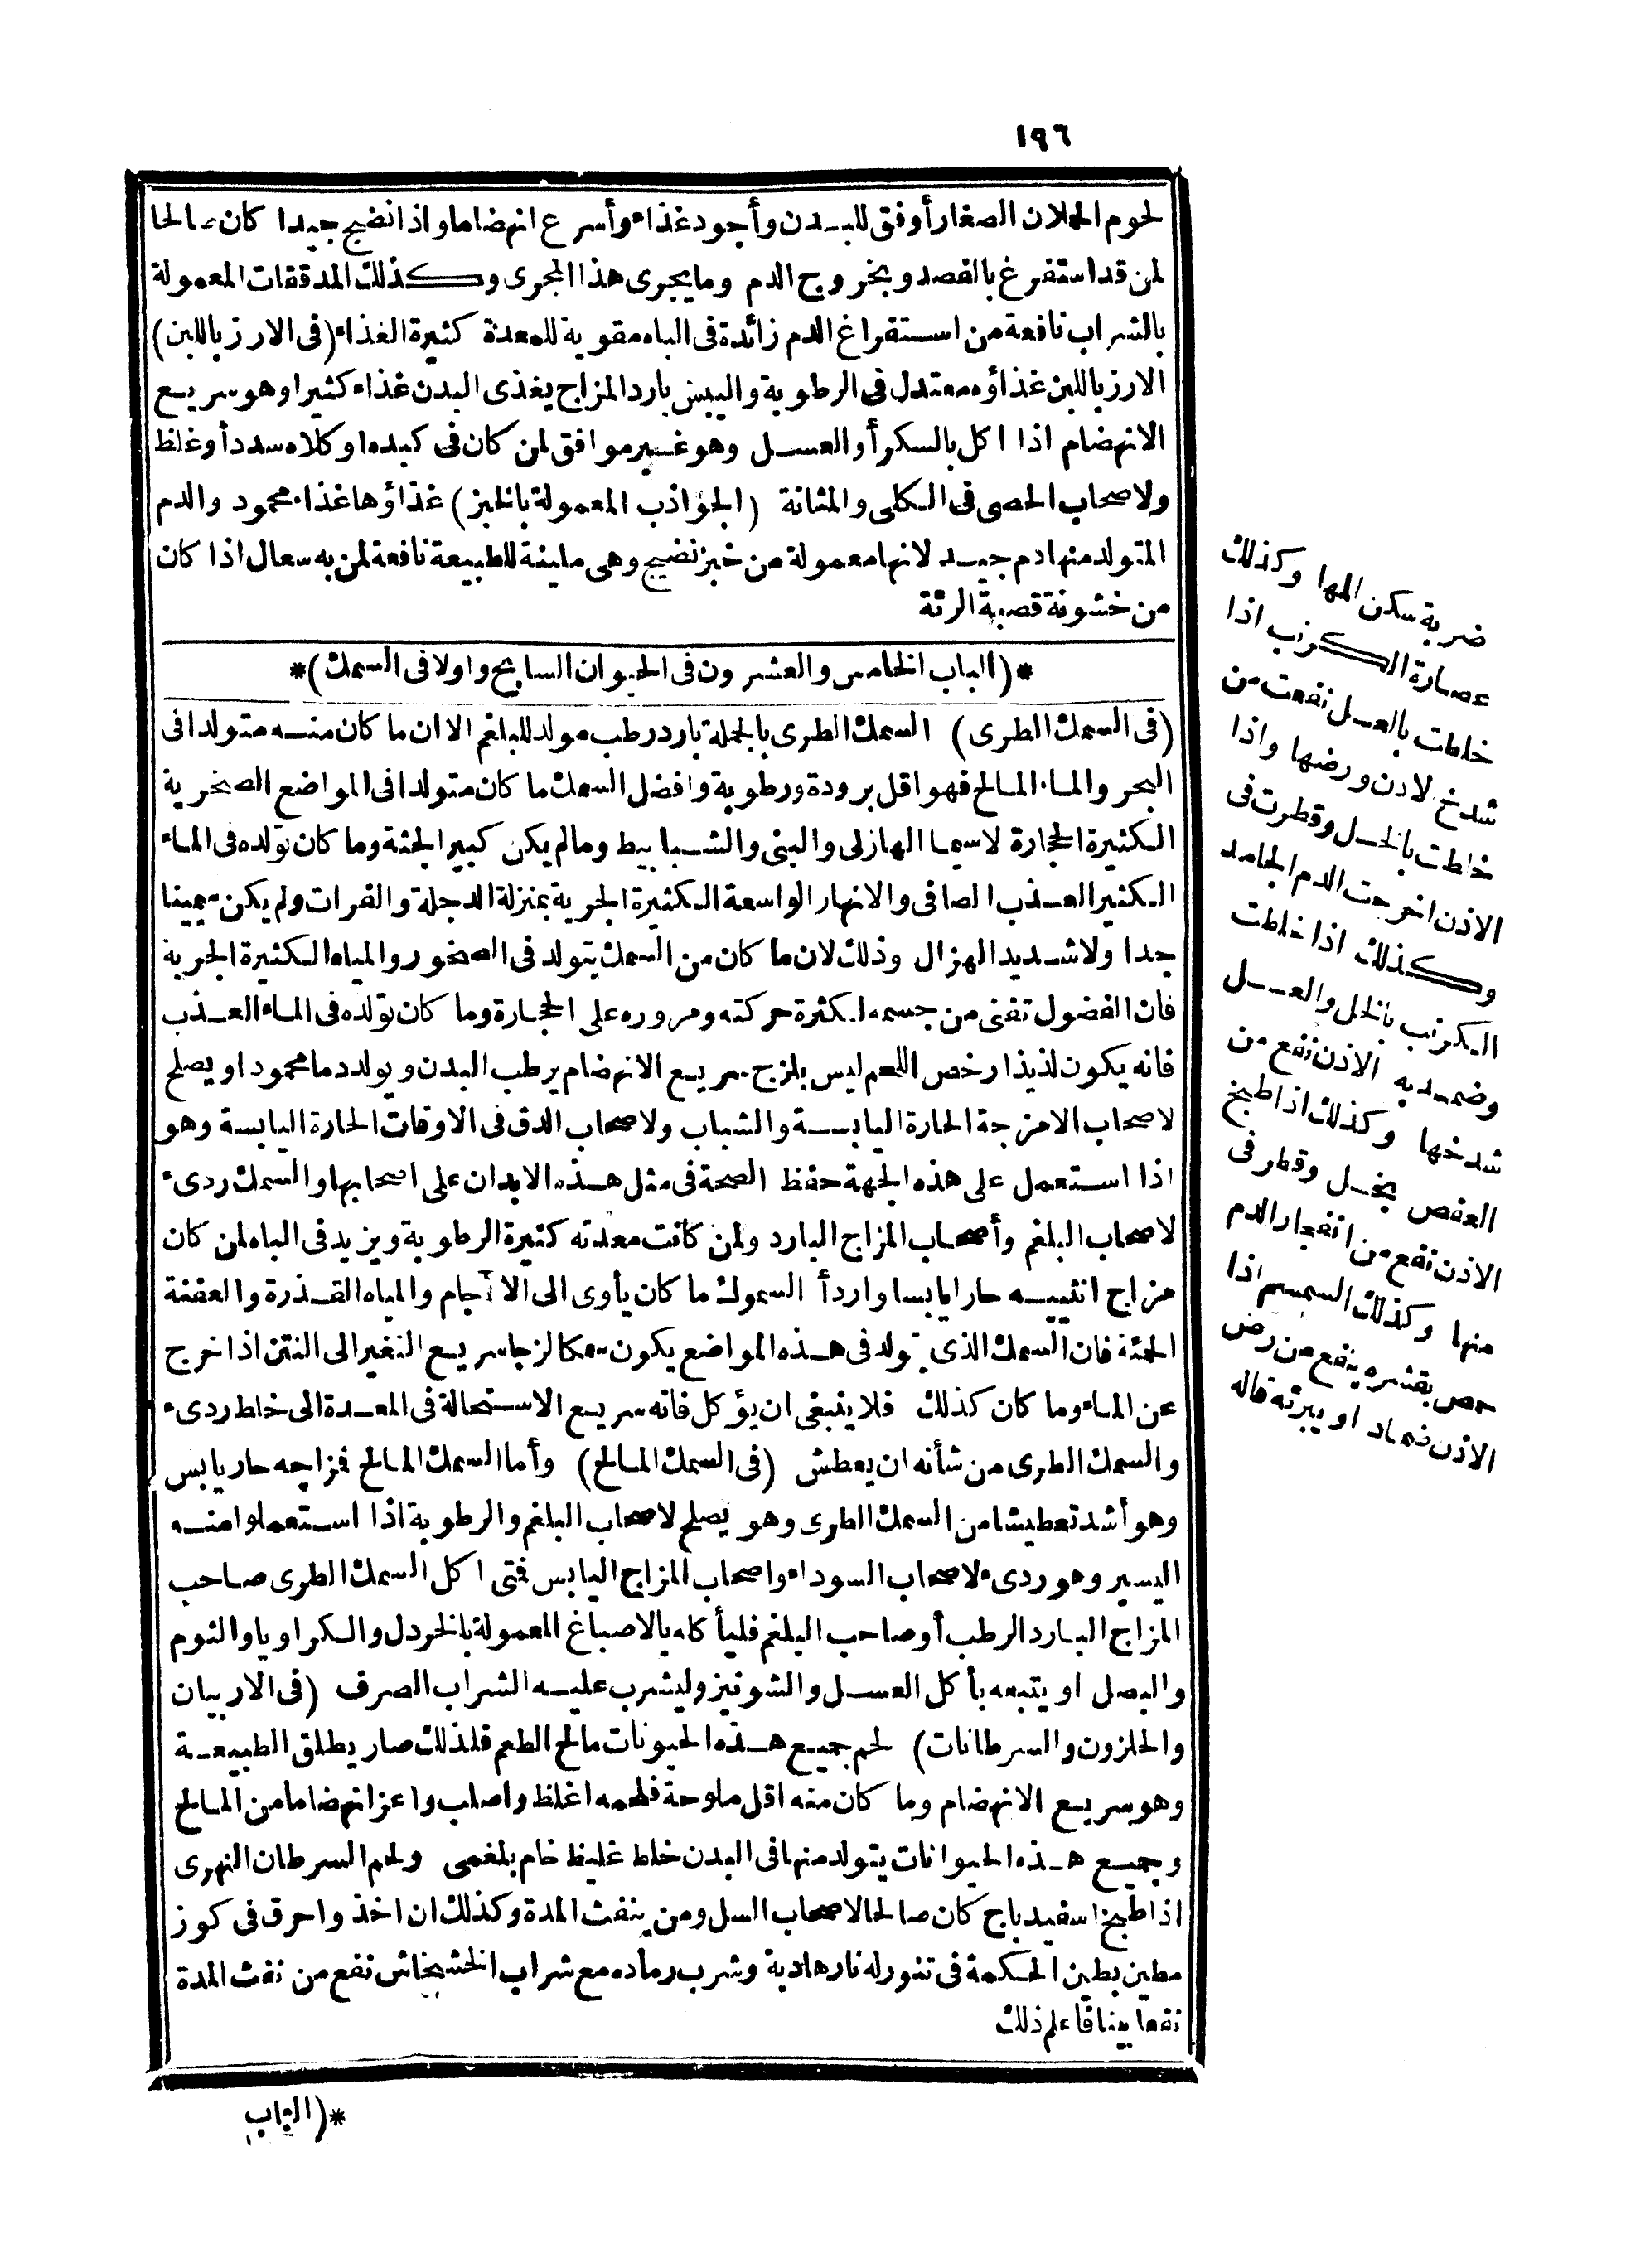 ١٩٦
لحوم الحملان الصغار أوفق للبدن وأجود غذاء وأسرع انهضاما واذا نضج جيدا كان صالحا
لمن قد استفرغ بالفصد وبخروج الدم وما يجرى هذا المجرى وكذلك المدققات المعمولة
بالشراب نافعة من استفراغ الدم زائدة فى الباه مقوية للمعدة كثيرة الغذاء (فى الارز باللبن)
الارز باللبن غذاؤه معتدل فى الرطوبة واليبس بارد المزاج يغذى البدن غذاء كثيرا وهو سريع
الانهضام اذا اكل بالسكر أو العسل وهو غير موافق لمن كان فى كبده او كلاه سدد أو غلظ
ولاصحاب الحصى فى الكلى والمثانة (الجواذب المعمولة بالخبز) غذاؤها غذاء محمود والدم
المتولد منها دم جيد لانها معمولة من خبز نضيج وهى ملينة للطبيعة نافعة لمن به سعال اذا كان
من خشونة قصبة الرئة
*(الباب الخامس والعشرون فى الحيوان السابح واولا فى السمك)*
(فى السمك الطرى) السمك الطرى بالجملة بارد رطب مولد للبلغم الا ان ما كان منه متولدا فى
البحر والماء المالح فهو اقل برودة ورطوبة وافضل السمك ما كان متولدا فى المواضع الصخرية
الكثيرة الحجارة لاسيما الهازلى والبنى والشبابيط وما لم يكن كبير الجثة وما كان تولده فى الماء
الكثير العذب الصافى والانهار الواسعة الكثيرة الجرية بمنزلة الدجلة والفرات ولم يكن سمينا
جدا ولا شديد الهزال وذلك لان ما كان من السمك يتولد فى الصخور والمياه الكثيرة الجرية
فان الفضول تفنى من جسمه لكثرة حركته ومروره على الحجارة وما كان تولده فى الماء العذب
فانه يكون لذيذا رخص اللحم ليس بلزج سريع الانهضام يرطب البدن ويولد دما محمودا ويصلح
لاصحاب الامزجة الحارة اليابسة والشباب ولاصحاب الدق فى الاوقات الحارة اليابسة وهو
اذا استعمل على هذه الجهة حفظ الصحة فى مثل هذه الابدان على اصحابها والسمك ردىء
لاصحاب البلغم وأصحاب المزاج البارد ولمن كانت معدته كثيرة الرطوبة ويزيد فى الباه لمن كان
مزاج انثييه حارا يابسا واردأ السموك ما كان يأوى الى الآجام والمياه القذرة والعفنة
الحمئة فان السمك الذى تولد فى هذه المواضع يكون سمكا لزجا سريع التغير الى النتن اذا خرج
عن الماء وما كان كذلك فلا ينبغى ان يؤكل فانه سريع الاستحالة فى المعدة الى خلط ردىء
والسمك الطرى من شأنه ان يعطش (فى السمك المالح) وأما السمك المالح فمزاجه حار يابس
وهو أشد تعطيشا من السمك الطرى وهو يصلح لاصحاب البلغم والرطوبة اذا استعملوا منه
اليسير وهو ردىء لاصحاب السوداء واصحاب المزاج اليابس فمتى اكل السمك الطرى صاحب
المزاج البارد الرطب أو صاحب البلغم فليأكله بالاصباغ المعمولة بالخردل والكراويا والثوم
والبصل او يتبعه بأكل العسل والشونيز وليشرب عليه الشراب الصرف (فى الاربيان
والحلزون والسرطانات) لحم جميع هذه الحيونات مالح الطعم فلذلك صار يطلق الطبيعة
وهو سريع الانهضام وما كان منه اقل ملوحة فلحمه اغلظ واصلب واعز انهضاما من المالح
وجميع هذه الحيوانات يتولد منها فى البدن خلط غليظ خام بلغمى ولحم السرطان النهرى
اذا طبخ اسفيدباج كان صالحا لاصحاب السل ومن ينفث المدة وكذلك ان اخذ واحرق فى كوز
مطين بطين الحكمة فى تنور له نار هادية وشرب رماده مع شراب الخشخاش نفع من نفث المدة
نفعا بينا فاعلم ذلك
*(الباب
ضربة سكن المها وكذلك
عصارة الكرنب اذا
خلطت بالعسل نفعت من
شدخ الاذن ورضها واذا
خلطت بالخل وقطرت فى
الاذن اخرجت الدم الجامد
وكذلك اذا خلطت
الكرنب بالخل والعسل
وضمد به الاذن نفع من
شدخها وكذلك اذا طبخ
العفص بخل وقطر فى
الاذن نفع من انفجار الدم
منها وكذلك السمسم اذا
حمص بقشره ينفع من رض
الاذن ضماد او يبرئه قاله